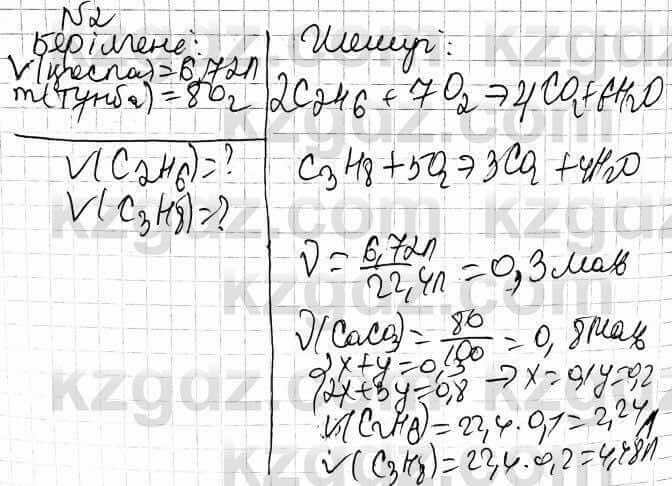 №2
Берілгені:
V(қоспа)=6,72л
m(тұнба)=80г
V(C2H6)=?
V(C3H8)=?
Шешуі:
2C2H6 + 7O2 → 4CO2+6H2O
C3H8+5O2→3CO2+4H2O
ν = 6,72л / 22,4л = 0,3 моль
ν(CaCO3) = 80 / 100 = 0,8 моль
{x+y=0,3
{2x+3y=0,8 → x=0,1 y=0,2
V(C2H6)=22,4·0,1=2,24л
V(C3H8)=22,4·0,2=4,48л
kzgdz.com